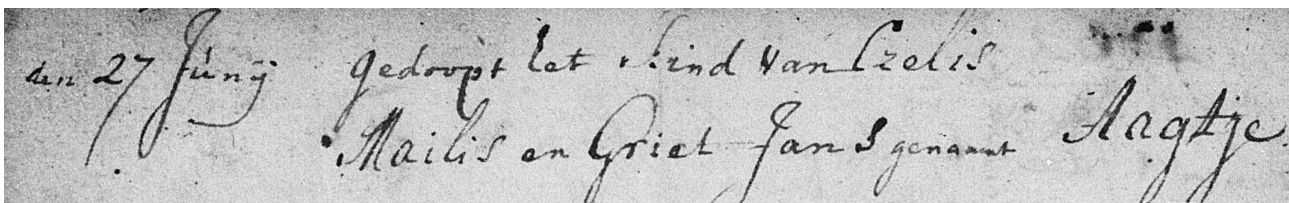 den 27 Junij gedoopt het kind van Czelis
Mailis en Griet Jans genaamt Aagtje